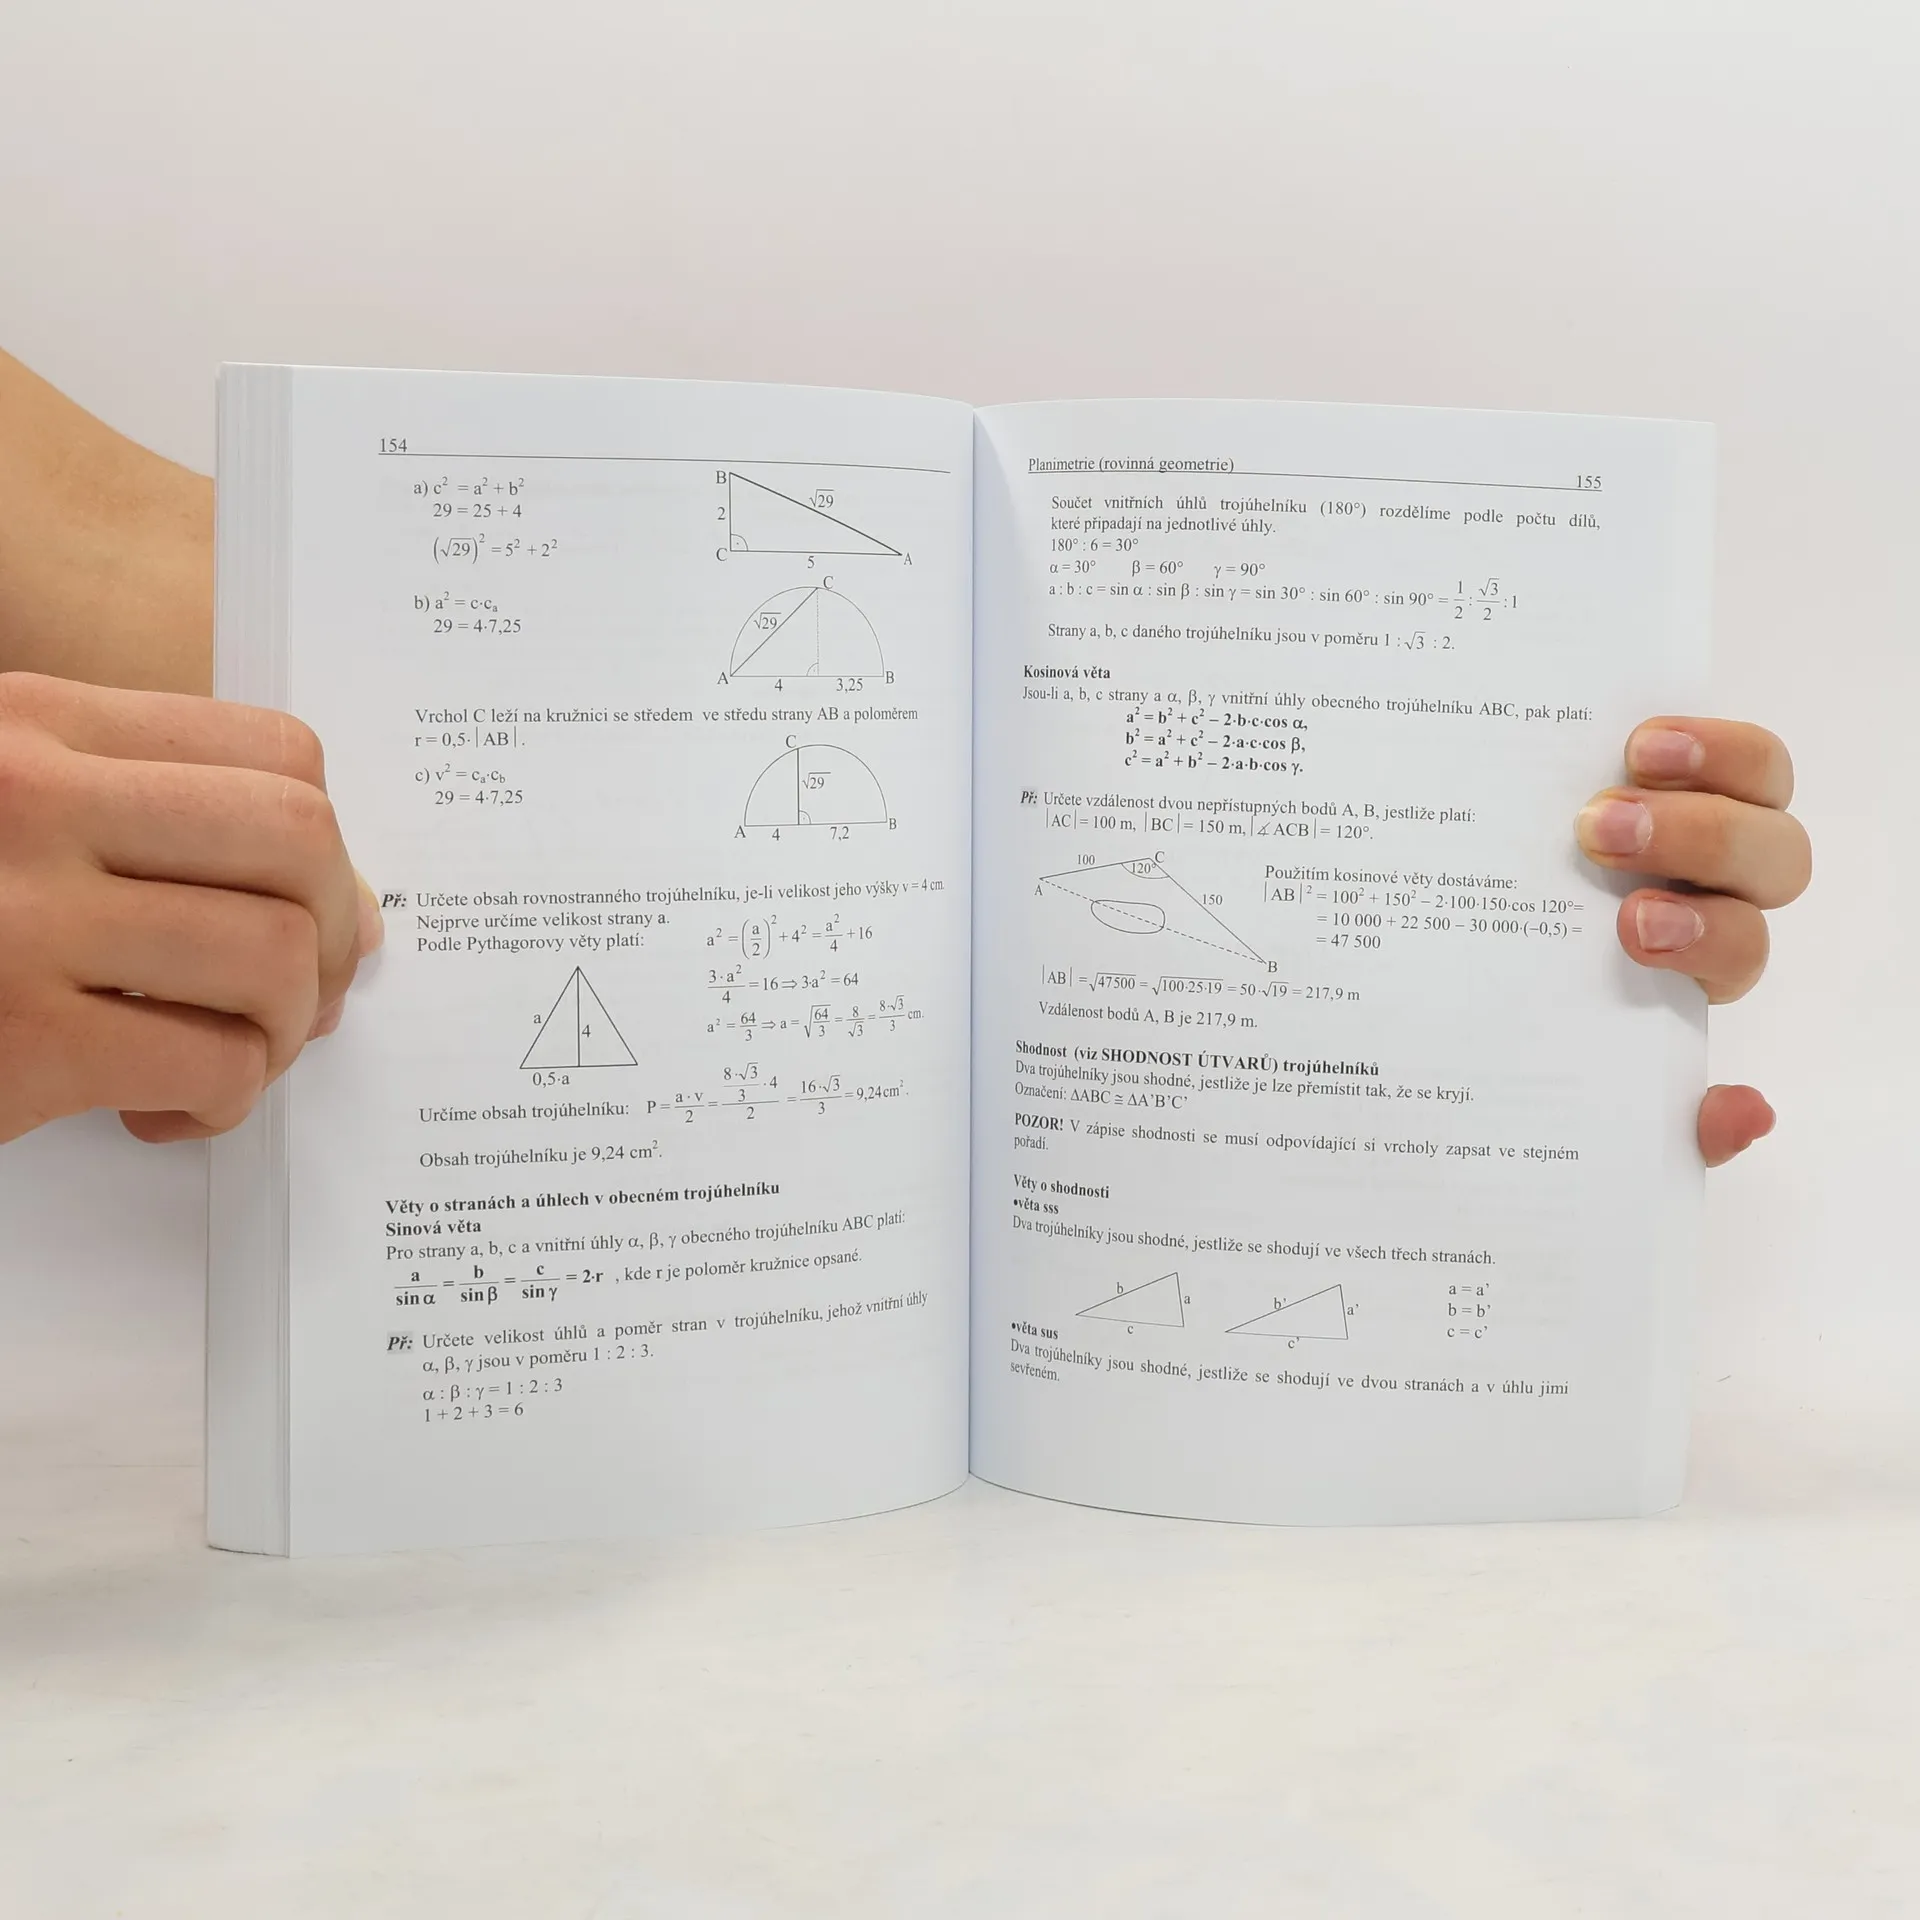 154
a) c² = a² + b²
29 = 25 + 4
(√29)² = 5² + 2²
B
√29
2
C
5
A
b) a² = c·cₐ
29 = 4·7,25
C
√29
A
4
3,25
B
Vrchol C leží na kružnici se středem ve středu strany AB a poloměrem
r = 0,5·|AB|.
c) v² = cₐ·c_b
29 = 4·7,25
C
√29
A
4
7,2
B
Př: Určete obsah rovnostranného trojúhelníku, je-li velikost jeho výšky v = 4 cm.
Nejprve určíme velikost strany a.
Podle Pythagorovy věty platí:
a² = (a/2)² + 4² = a²/4 + 16
3·a²/4 = 16 ⇒ 3·a² = 64
a² = 64/3 ⇒ a = √(64/3) = 8/√3 = 8·√3/3 cm.
a
4
0,5·a
Určíme obsah trojúhelníku: P = a·v/2 = (8·√3/3 ·4)/2 = 16·√3/3 = 9,24 cm².
Obsah trojúhelníku je 9,24 cm².
Věty o stranách a úhlech v obecném trojúhelníku
Sinová věta
Pro strany a, b, c a vnitřní úhly α, β, γ obecného trojúhelníku ABC platí:
a/sin α = b/sin β = c/sin γ = 2·r , kde r je poloměr kružnice opsané.
Př: Určete velikost úhlů a poměr stran v trojúhelníku, jehož vnitřní úhly
α, β, γ jsou v poměru 1 : 2 : 3.
α : β : γ = 1 : 2 : 3
1 + 2 + 3 = 6
Planimetrie (rovinná geometrie)
155
Součet vnitřních úhlů trojúhelníku (180°) rozdělíme podle počtu dílů,
které připadají na jednotlivé úhly.
180° : 6 = 30°
α = 30° β = 60° γ = 90°
a : b : c = sin α : sin β : sin γ = sin 30° : sin 60° : sin 90° = 1/2 : √3/2 : 1
Strany a, b, c daného trojúhelníku jsou v poměru 1 : √3 : 2.
Kosinová věta
Jsou-li a, b, c strany a α, β, γ vnitřní úhly obecného trojúhelníku ABC, pak platí:
a² = b² + c² – 2·b·c·cos α,
b² = a² + c² – 2·a·c·cos β,
c² = a² + b² – 2·a·b·cos γ.
Př: Určete vzdálenost dvou nepřístupných bodů A, B, jestliže platí:
|AC| = 100 m, |BC| = 150 m, |∡ ACB| = 120°.
100
C
120°
A
150
B
Použitím kosinové věty dostáváme:
|AB|² = 100² + 150² – 2·100·150·cos 120°=
= 10 000 + 22 500 – 30 000·(–0,5) =
= 47 500
|AB| = √47500 = √100·25·19 = 50·√19 = 217,9 m
Vzdálenost bodů A, B je 217,9 m.
Shodnost (viz SHODNOST ÚTVARŮ) trojúhelníků
Dva trojúhelníky jsou shodné, jestliže je lze přemístit tak, že se kryjí.
Označení: ΔABC ≅ ΔA’B’C’
POZOR! V zápise shodnosti se musí odpovídající si vrcholy zapsat ve stejném
pořadí.
Věty o shodnosti
•věta sss
Dva trojúhelníky jsou shodné, jestliže se shodují ve všech třech stranách.
b
a
c
b’
a’
c’
a = a’
b = b’
c = c’
•věta sus
Dva trojúhelníky jsou shodné, jestliže se shodují ve dvou stranách a v úhlu jimi
sevřeném.